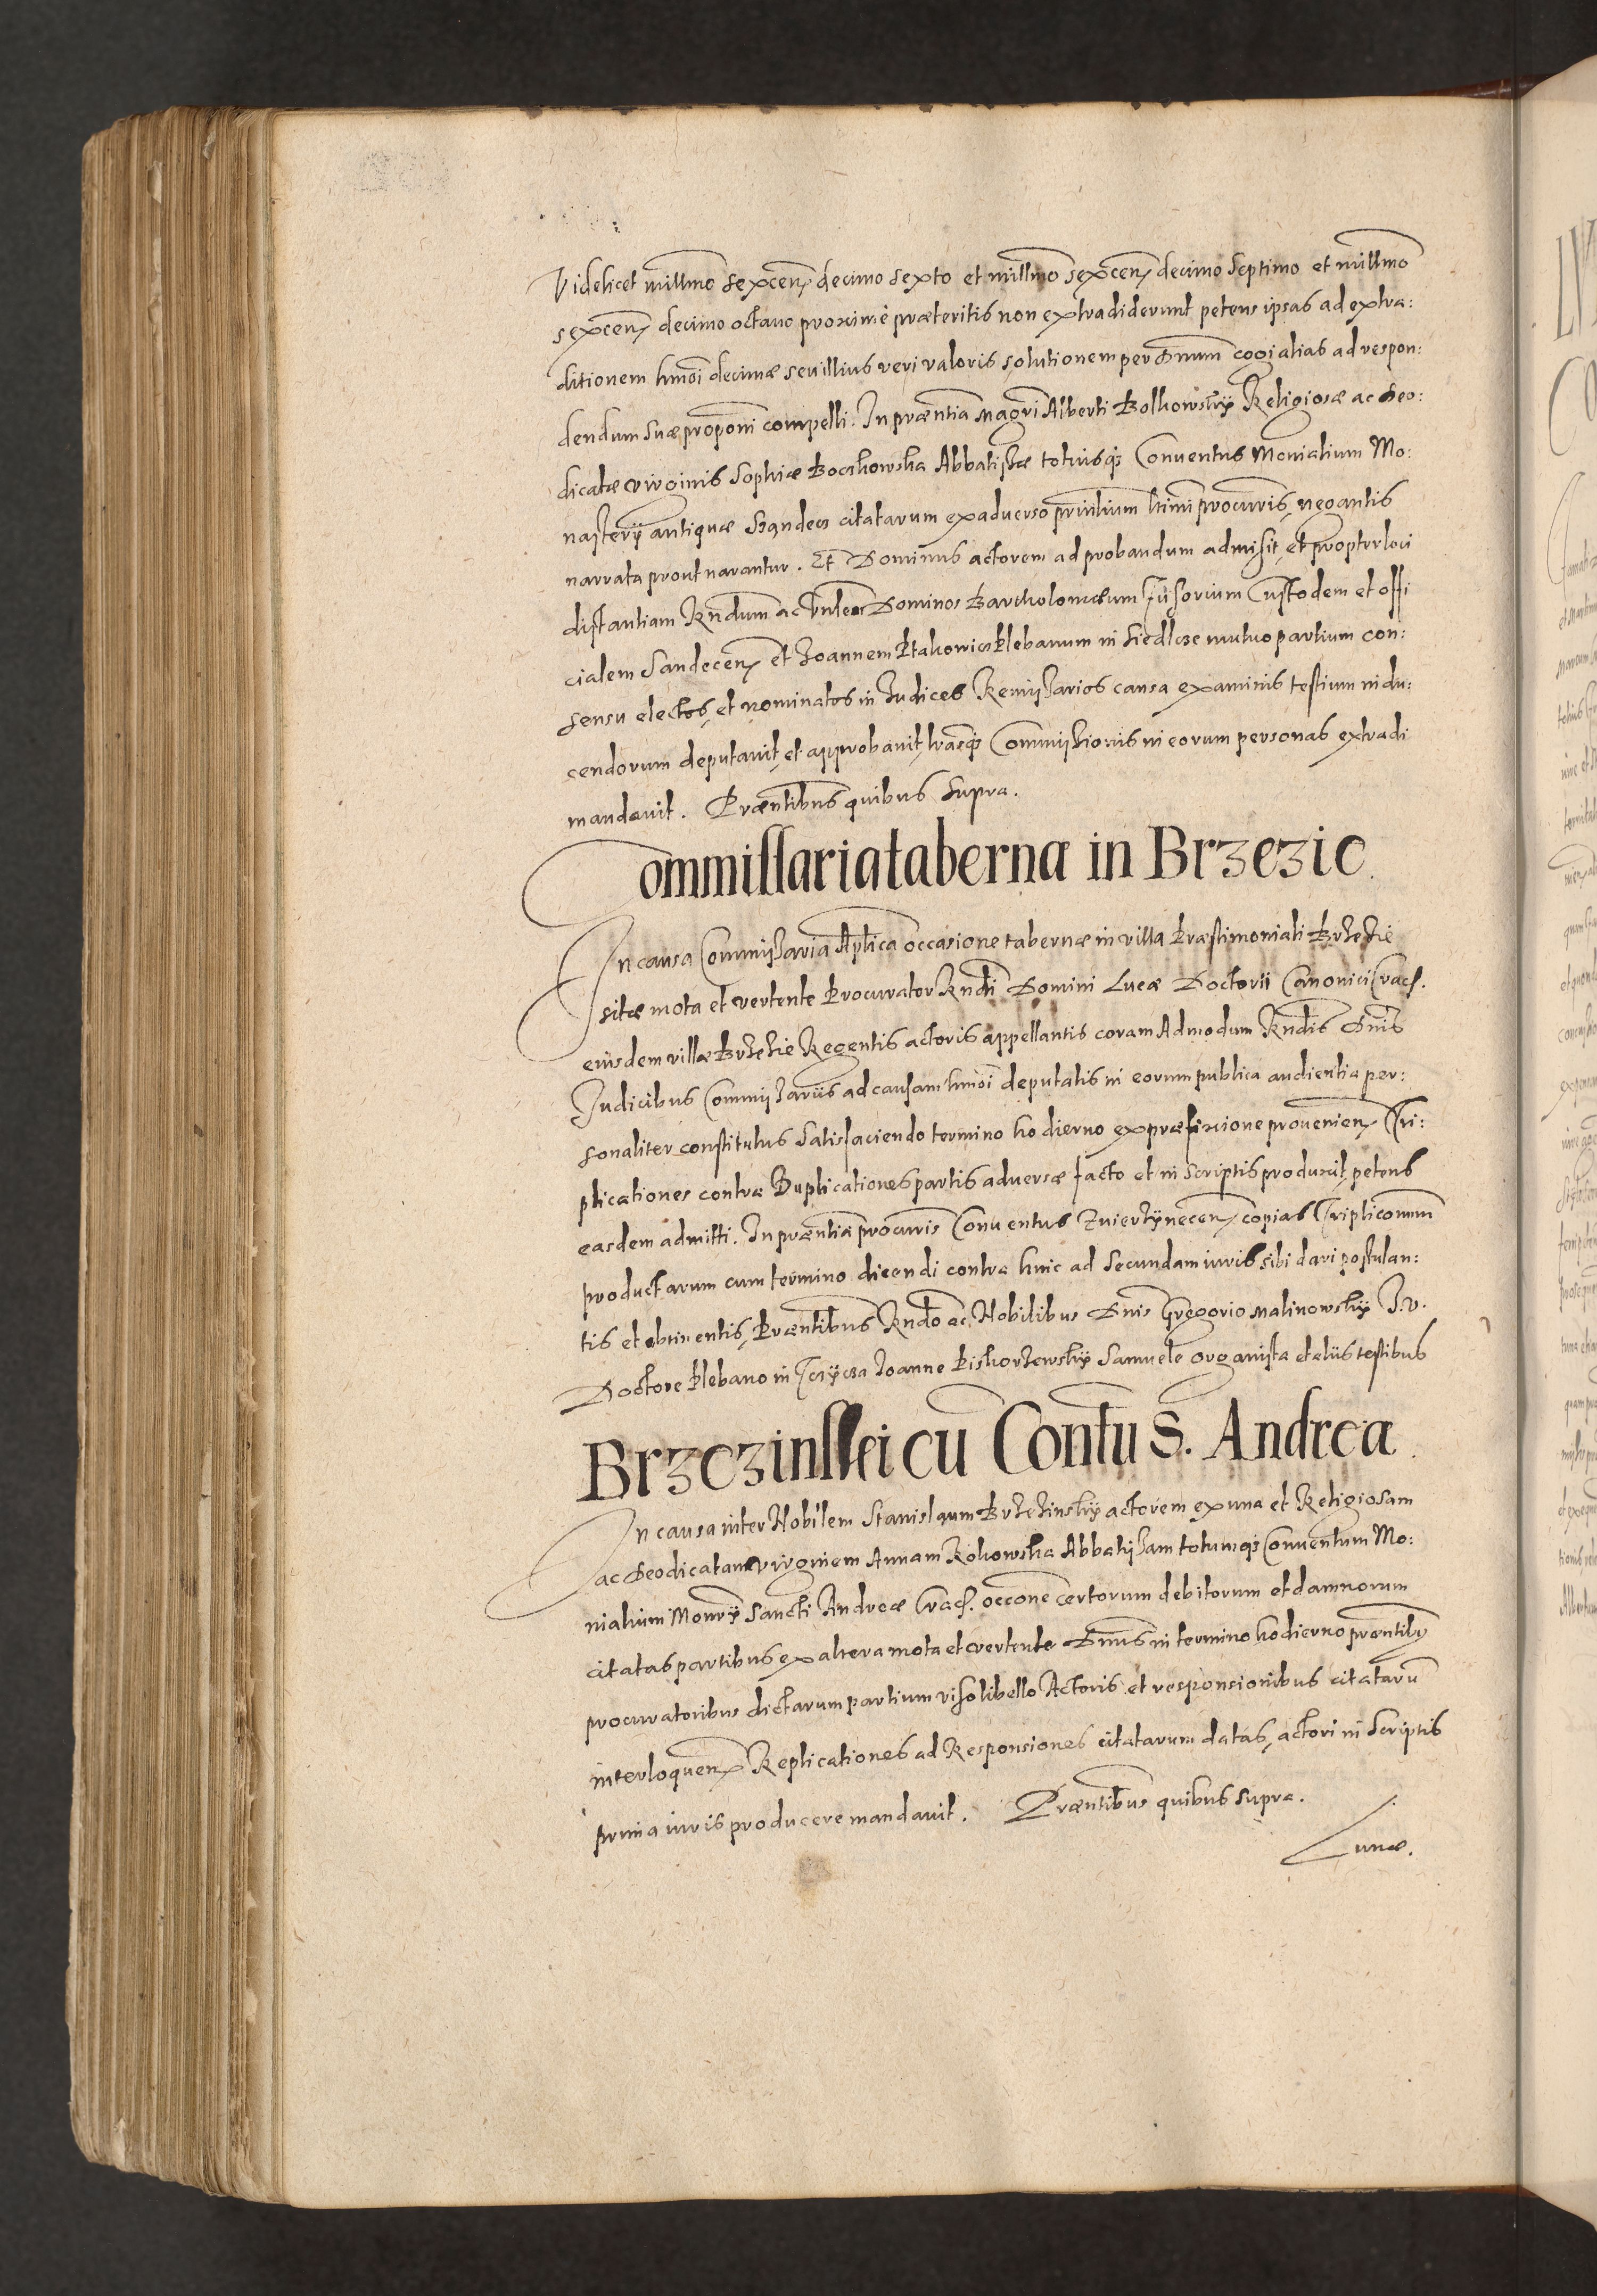 Videlicet millmo sexcen decimo sexto et millmo sexcen decimo septimo et millmo
sexcen decimo octavo proximè præteritis non extradiderunt petens ipsas ad extra:
ditionem hmoi decimæ seu illius veri valoris solutionem per Dnum cogi alias ad respon:
dendum suæ proponi compelli. In præntia Magri Alberti Bolkowsky Religiosæ ac Deo:
dicatæ virginis Sophiæ Boczkowska Abbatissæ totiusq Conventus Monialium Mo:
nasterÿ antiquæ Szandecz citatarum ex adverso prñtium ltimi procuris, negantis
narrata prout narantur. Et Dominus actorem ad probandum admisit, et propter loci
distantiam Rndum ac Vnles Dominos Bartholomæum Fusorium Custodem et offi
cialem Sandecen et Joannem Ptakowicz Plebanum in Siedlcze mutuo partium con:
sensu electos, et nominatos in Judices Remissarios causa examinis testium indu:
cendorum deputavit, et approbavit, lrasq Commissionis in eorum personas extradi
mandavit. Præntibus quibus supra.
Commissaria taberna in Brzezie
In causa Commissaria Aplica occasione tabernæ in villa Præstimoniali Brzezie
sitæ mota et vertente Procurator Rndi Domini Lucæ Doctorii Canonici Crac.
eiusdem villæ Brzezie Regentis actoris appellantis coram Admodum Rndis Dnis
Judicibus Commissariis ad causam hmoi deputatis in eorum publica audientia per:
sonaliter constitutus satisfaciendo termino hodierno ex præfixione provenien Tri:
plicationes contra Duplicationes partis adversæ facto et in scriptis produxit, petens
easdem admitti. In præntia procuris Conventus Zvierzÿnecen copias Triplicomum
productarum cum termino dicendi contra hinc ad secundam iuris sibi dari postulan:
tis et obtinentis, Præntibus Rndo ac Nobilibus Dnis Gregorio Malinowsky J.V.
Doctore Plebano in Tczÿcza Joanne Piskorzewsky Samuele Organista et aliis testibus
Brzezinskei cu Contu S. Andrea
In causa inter Nobilem Stanislaum Brzezinsky actorem ex una et Religiosam
ac Deodicatam virginem Annam Kokowska Abbatissam totumq Conventum Mo:
nialium Monrÿ Sancti Andreæ Crac. occone certorum debitorum et damnorum
citatas partibus ex altera mota et vertente Dnus in termino hodierno præntibus
procuratoribus dictarum partium viso libello Actoris et responsionibus citataru
interloquen Replicationes ad Responsiones citatarum datas, actori in scriptis
prima iuris producere mandavit. Præntibus quibus supra.
Lunæ.